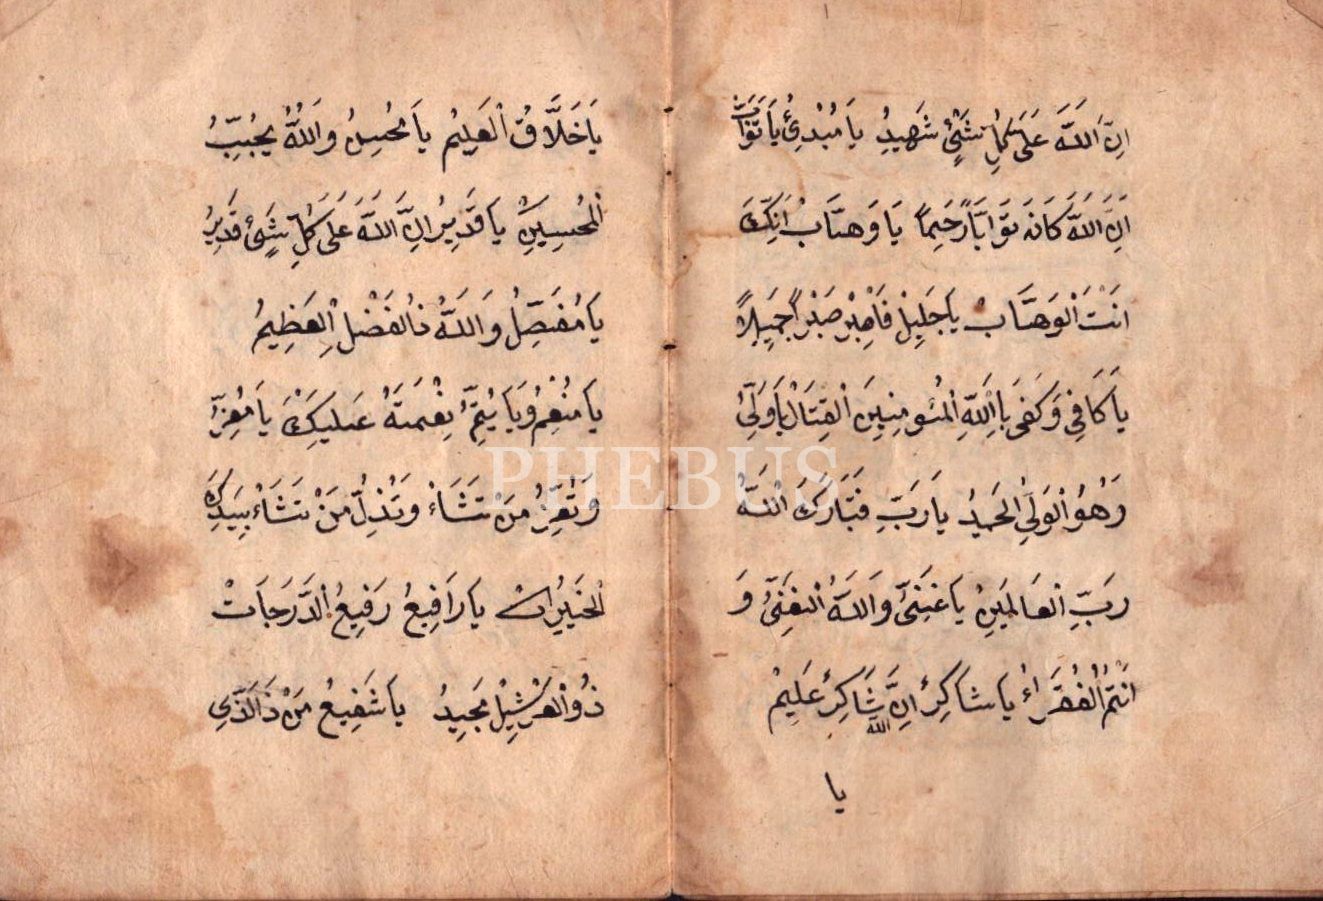 اِنَّ اللّٰهَ عَلَى كُلِّ شَىْءٍ شَهِيدُ يَا مُبْدِئُ يَا تَوَّابُ
اِنَّ اللّٰهَ كَانَ تَوَّابًا رَحِيمًا يَا وَهَّابُ اَنِّكَ
اَنْتَ الْوَهَّابْ يَا جَلِيلْ فَاصْبِرْ صَبْرًا جَمِيلًا
يَا كَافِى وَكَفَى بِاللّٰهِ الْمُئومِنِينَ الْقِتَالْ يَا وَلِىُّ
وَهُوُ الْوَلِىُّ الْحَمِيدُ يَا رَبِّ فَتَبَارَكَ اللّٰهُ
رَبِّ الْعَالَمِينْ يَا غَنِىُّ وَاللّٰهُ الْغَنِىُّ وَ
اَنْتُمُ الْفُقَرَاءُ يَا شَاكِرُ اِنَّ اللّٰه شَاكِرُ عَلِيمْ
يا
يَا خَلَّاقُ الْعَلِيمُ يَا مُحْسِنُ وَاللّٰهُ يُحِبُّ
الْمُحْسِنِينْ يَا قَدِيرُ اِنَّ اللّٰهَ عَلَى كُلِّ شَىْءٍ قَدِيرُ
يَا مُفَضِّلُ وَاللّٰهُ ذُالْفَضْلِ الْعَظِيمُ
يَا مُنْعِمُ وَيَا يُتِمُّ نِعْمَتَهُ عَلَيْكَ يَا مُعِزُّ
وَتُعِزُّ مَنْ تَشَاءْ وَتُذِلُّ مَنْ تَشَاءْ بِيَدِكَ
الْخَيْرُ اِنَّكَ يَا رَافِيعُ رَفِيعُ الدَّرَجَاتْ
ذُو الْعَرْشِيلْ مَجِيدُ يَا شَفِيعُ مَنْ ذَالَّذِى
PHEBUS